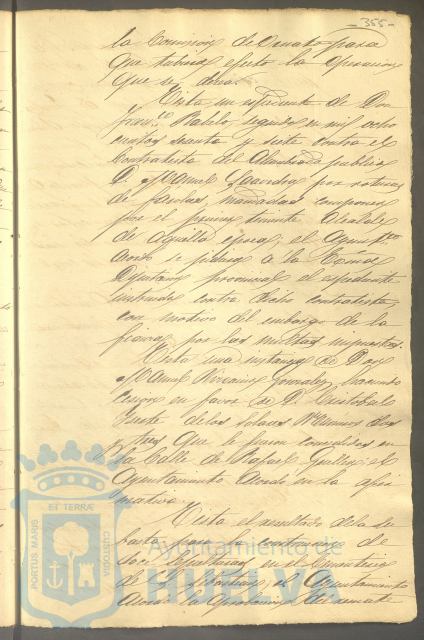 - 355 -
la Comision de Ornato para
que tubiera efecto la Operacion
que se decia.
Vista un espediente de Don
Fran.co Rabelo seguido en mil ocho
cientos sesenta y siete contra el
Contratista del Alumbrado publico
D. Manuel Saavedra por roturas
de farolas mandadas componer
por el primer teniente Alcalde
de aquella epoca; el Ayunt.to
acordo se pidiera á la Exma
Diputacion provincial el espediente
instruido contra dicho contratista
con motivo del embargo de la
fianza por las multas impuestas.
Vista una instancia de Don
Manuel Gonzalez haciendo
cesion en favor de D. Cristobal
de los Solares Numeros dos
y tres que le fueron concedidos en
la Calle de Rafael Guillen; el
Ayuntamiento acordo en la afir
mativa.
Vista el resultado de la su
basta para la construccion de
dos sepulturas en el Cementerio
de el Ayuntamiento
acordo la aprobacion del remate
PORTUS MARIS ET TERRÆ CUSTODIA
Ayuntamiento de
HUELVA